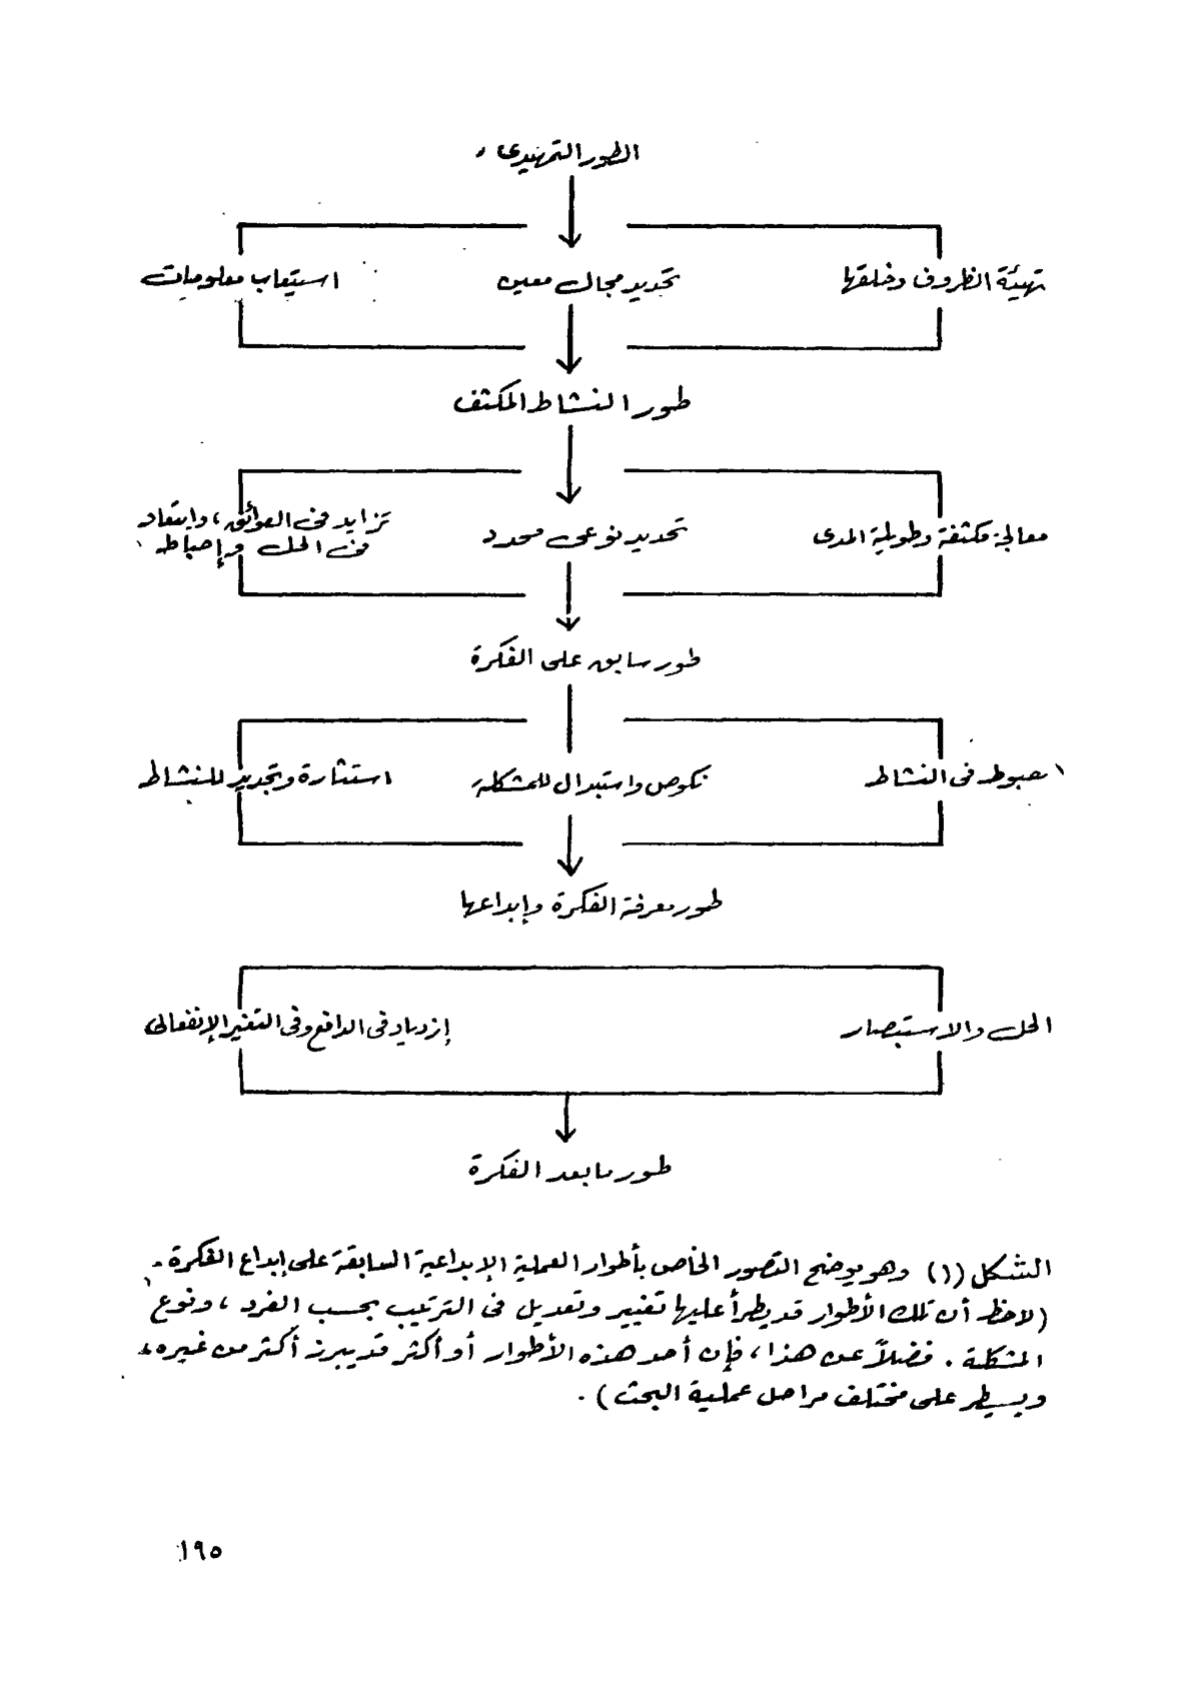 الطور التمهيدى
تهيئة الظروف وخلقها
تحديد مجال معين
استيعاب معلومات
طور النشاط المكثف
معالجة مكثفة وطويلة المدى
تحديد نوعى محدد
تزايد فى العوائق، وابتعاد
فى الحل وإحباط
طور سابق على الفكرة
هبوط فى النشاط
نكوص واستبدال للمشكلة
استثارة وتجديد للنشاط
طور معرفة الفكرة وإبداعها
الحل والاستبصار
إزدياد فى الدافع وفى التغير الإنفعالى
طور ما بعد الفكرة
الشكل (١) وهو يوضح التصور الخاص بأطوار العملية الإبداعية السابقة على إبداع الفكرة .
(لاحظ أن تلك الأطوار قد يطرأ عليها تغيير وتعديل فى الترتيب بحسب الفرد ، ونوع
المشكلة . فضلاً عن هذا ، فإن أحد هذه الأطوار أو أكثر قد يبرز أكثر من غيره ،
ويسيطر على مختلف مراحل عملية البحث ) .
١٩٥